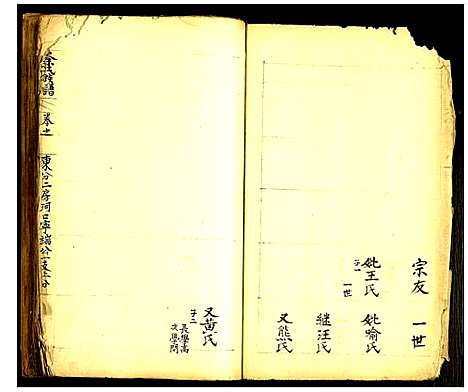 宗友 一世
妣王氏
子一 一世
妣喻氏
繼汪氏
又熊氏
又黃氏
子二
長學高
次學閑
氏族譜
卷之
東分二房河口寧端公一支分